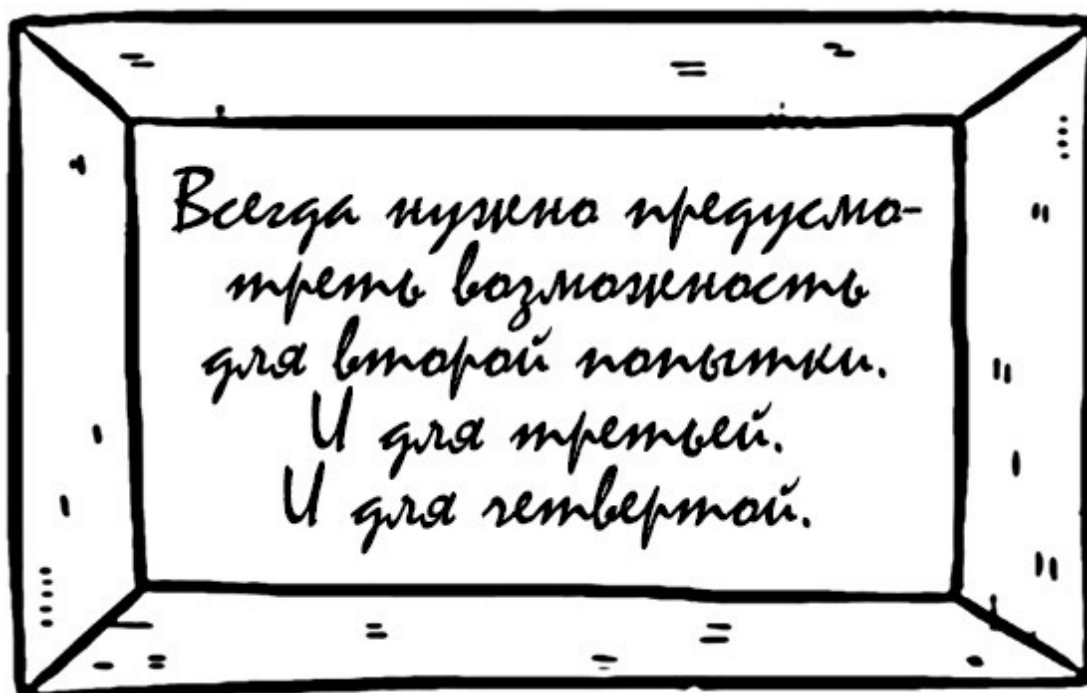 Всегда нужно предусмо-
треть возможность
для второй попытки.
И для третьей.
И для четвертой.